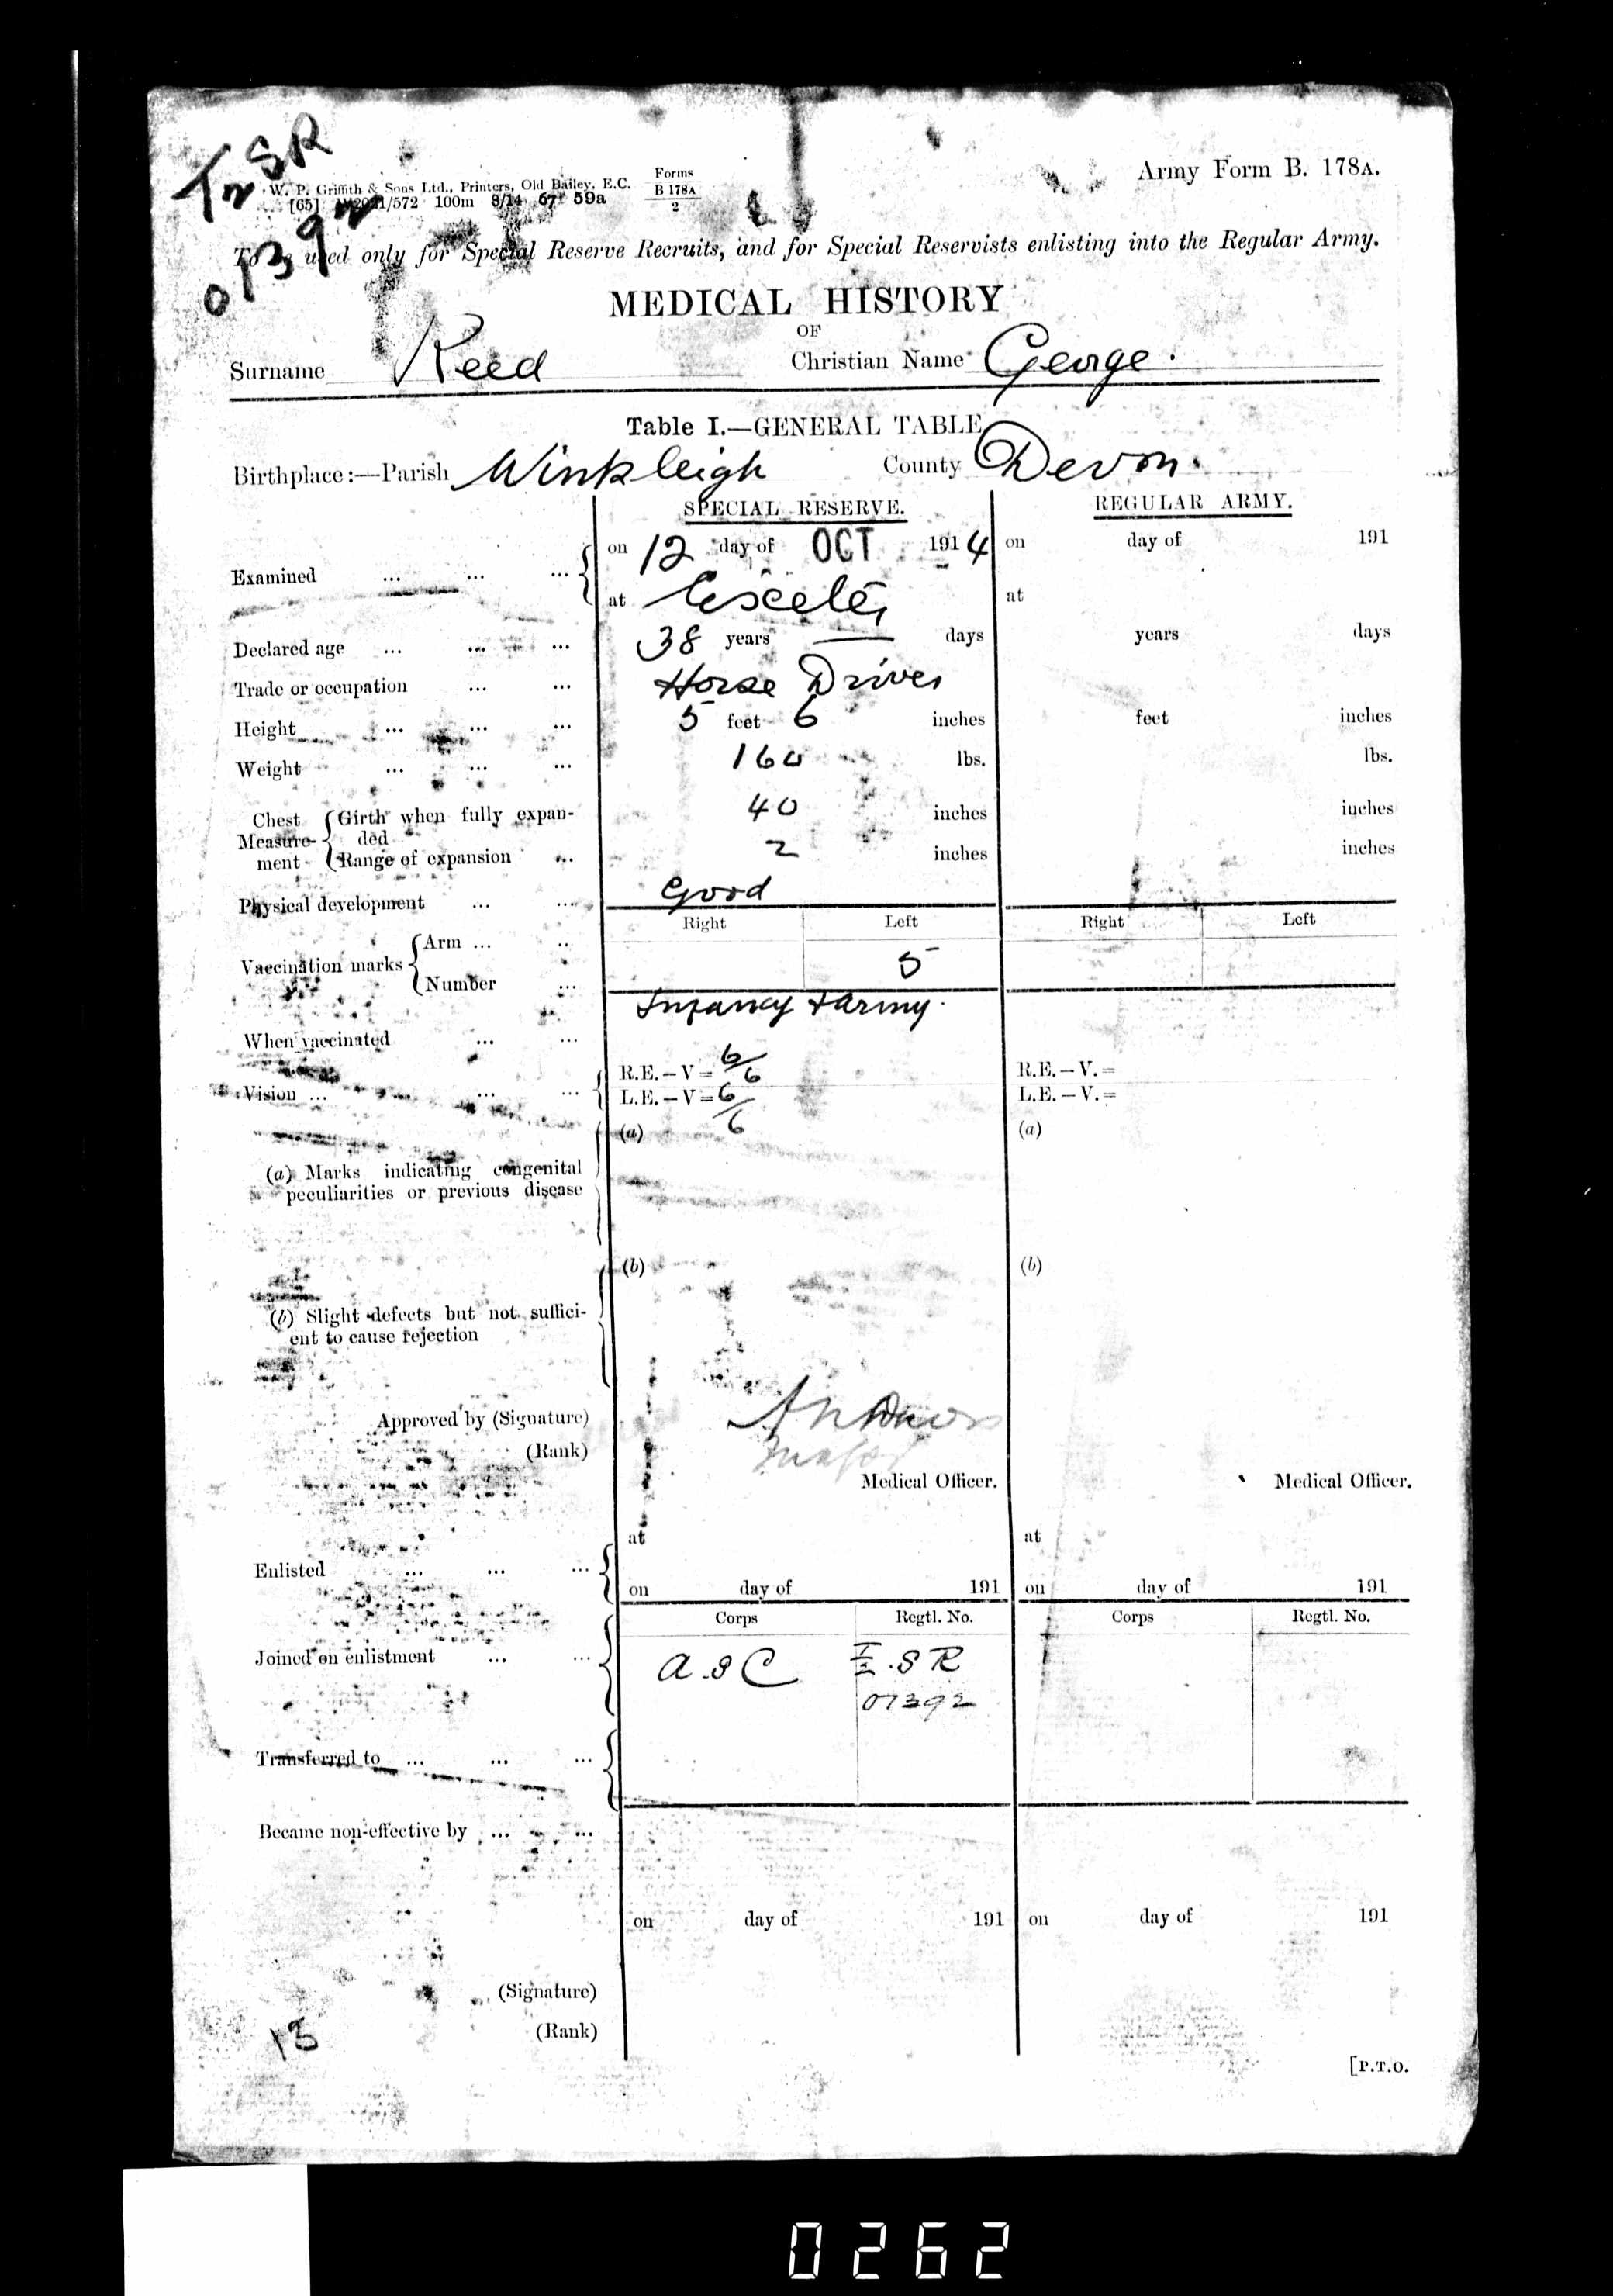 T2 SR
01392
W. P. Griffith & Sons Ltd., Printers, Old Bailey, E.C.
[65] /572 100m 8/14 67 59a
Forms
B 178A
2
Army Form B. 178A.
To be used only for Special Reserve Recruits, and for Special Reservists enlisting into the Regular Army.
MEDICAL HISTORY
OF
Surname Reed Christian Name George.
Table I.—GENERAL TABLE
Birthplace:—Parish Winkleigh County Devon.
SPECIAL RESERVE. REGULAR ARMY.
Examined ... ... ... on 12 day of OCT 1914 on day of 191
at Exeter at
Declared age ... ... ... 38 years — days years days
Trade or occupation ... ... Horse Driver
Height ... ... ... 5 feet 6 inches feet inches
Weight ... ... ... 160 lbs. lbs.
Chest Measurement Girth when fully expanded 40 inches inches
Range of expansion ... 2 inches inches
Physical development ... ... Good
Right Left Right Left
Vaccination marks Arm ... ..
Number ... 5
When vaccinated ... ... Infancy & Army.
Vision ... ... ... R.E.—V= 6/6 R.E.—V.=
L.E.—V= 6/6 L.E.—V.=
(a) Marks indicating congenital
peculiarities or previous disease
(a) (a)
(b) Slight defects but not suffici-
ent to cause rejection
(b) (b)
Approved by (Signature)
(Rank) Major
Medical Officer. Medical Officer.
Enlisted ... ... ... at at
on day of 191 on day of 191
Corps Regtl. No. Corps Regtl. No.
Joined on enlistment ... ... A.S.C S R
01392
Transferred to ... ... ...
Became non-effective by ... ... ...
on day of 191 on day of 191
(Signature)
(Rank)
13
[P.T.O.
0262